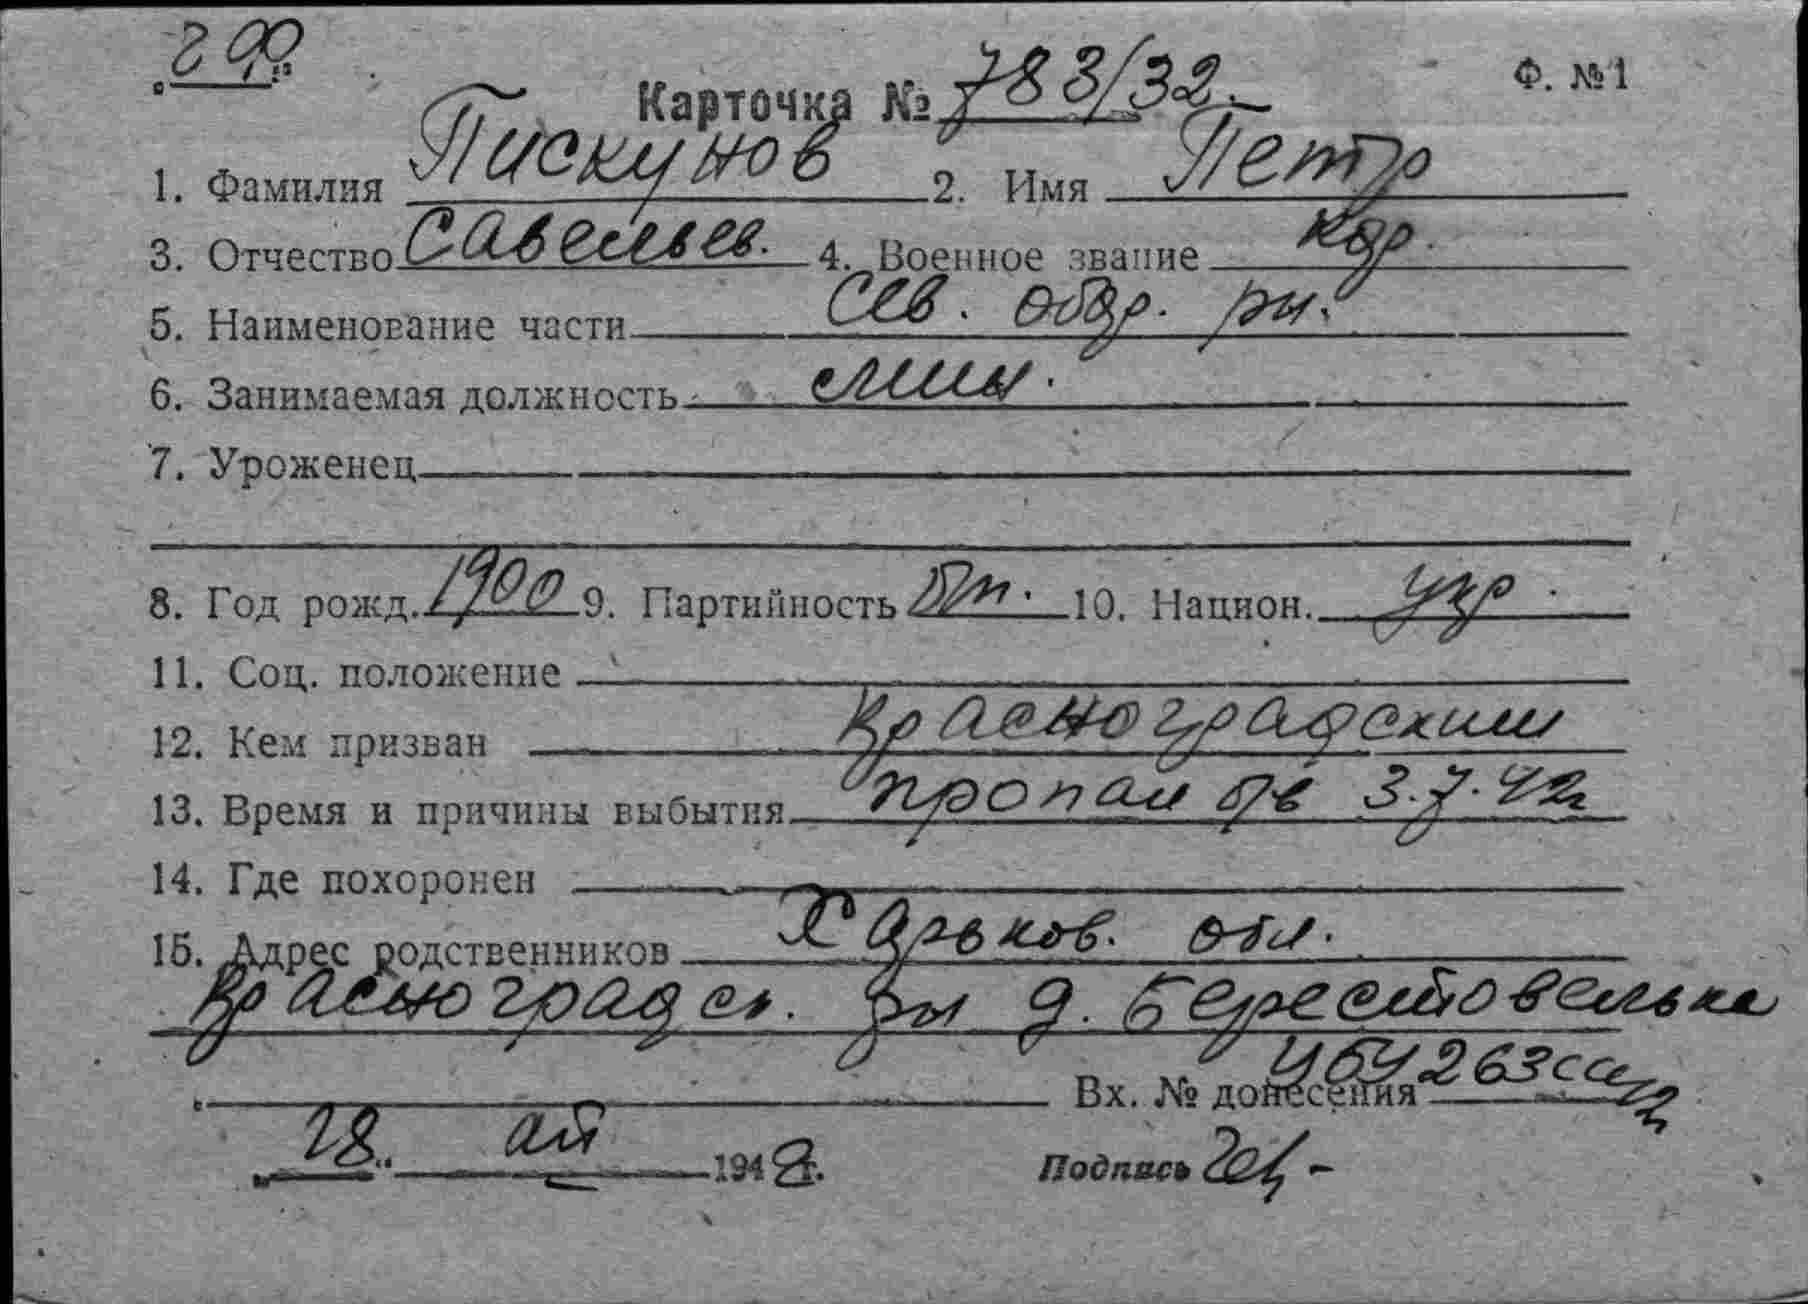 Ф. №1
Карточка № 783/32.
1. Фамилия Пискунов 2. Имя Петр
3. Отчество Савельев. 4. Военное звание кр.
5. Наименование части Сев. обор. рн.
6. Занимаемая должность
7. Уроженец
8. Год рожд. 1900 9. Партийность 10. Национ. укр.
11. Соц. положение
12. Кем призван Красноградским
13. Время и причины выбытия пропал б/в 3.7.42г
14. Где похоронен
15. Адрес родственников Харьков. обл.
Красноградск. рн д. Берестовенька
Вх. № донесения
28 1948г.
Подпись